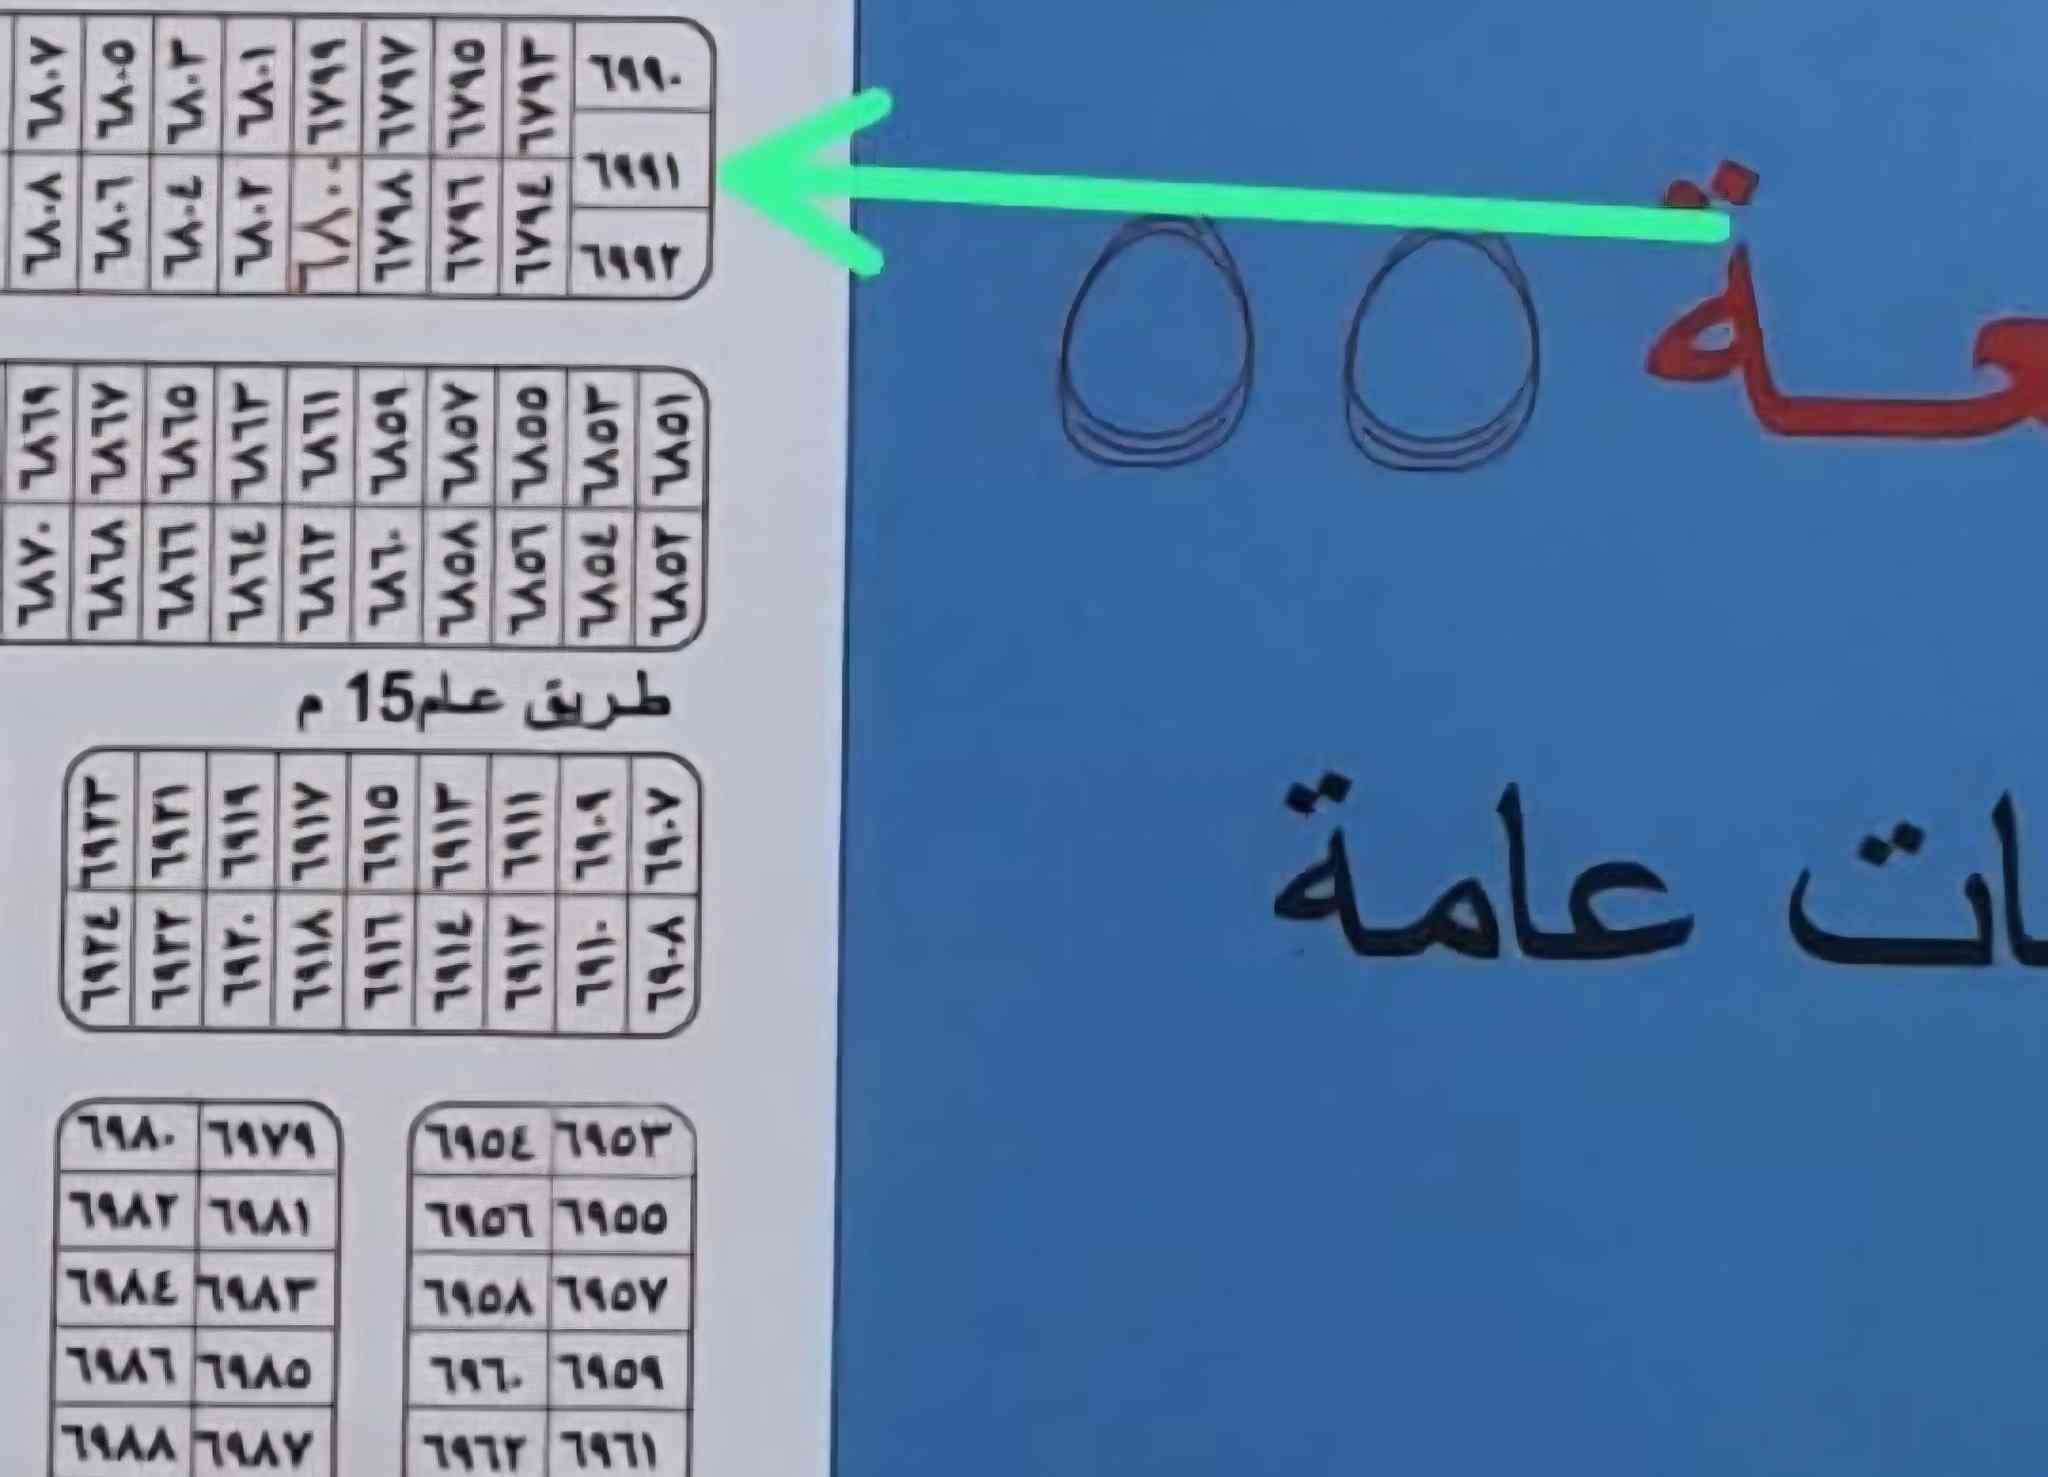 ٦٨٠٧ ٦٨٠٥ ٦٨٠٣ ٦٨٠١ ٦٧٩٩ ٦٧٩٧ ٦٧٩٥ ٦٧٩٣
٦٨٠٨ ٦٨٠٦ ٦٨٠٤ ٦٨٠٢ ٦٧٩٨ ٦٧٩٦ ٦٧٩٤
٦٩٩٠
٦٩٩١
٦٩٩٢
ة
٥٥
٦٨٦٩ ٦٨٦٧ ٦٨٦٥ ٦٨٦٣ ٦٨٦١ ٦٨٥٩ ٦٨٥٧ ٦٨٥٥ ٦٨٥٣ ٦٨٥١
٦٨٧٠ ٦٨٦٨ ٦٨٦٦ ٦٨٦٤ ٦٨٦٢ ٦٨٦٠ ٦٨٥٨ ٦٨٥٦ ٦٨٥٤ ٦٨٥٢
طريق علم15 م
ات عامة
٦٩٢٣ ٦٩٢١ ٦٩١٩ ٦٩١٧ ٦٩١٥ ٦٩١٣ ٦٩١١ ٦٩٠٩ ٦٩٠٧
٦٩٢٤ ٦٩٢٢ ٦٩٢٠ ٦٩١٨ ٦٩١٦ ٦٩١٤ ٦٩١٢ ٦٩١٠ ٦٩٠٨
٦٩٨٠ ٦٩٧٩ ٦٩٥٤ ٦٩٥٣
٦٩٨٢ ٦٩٨١ ٦٩٥٦ ٦٩٥٥
٦٩٨٤ ٦٩٨٣ ٦٩٥٨ ٦٩٥٧
٦٩٨٦ ٦٩٨٥ ٦٩٦٠ ٦٩٥٩
٦٩٨٨ ٦٩٨٧ ٦٩٦٢ ٦٩٦١